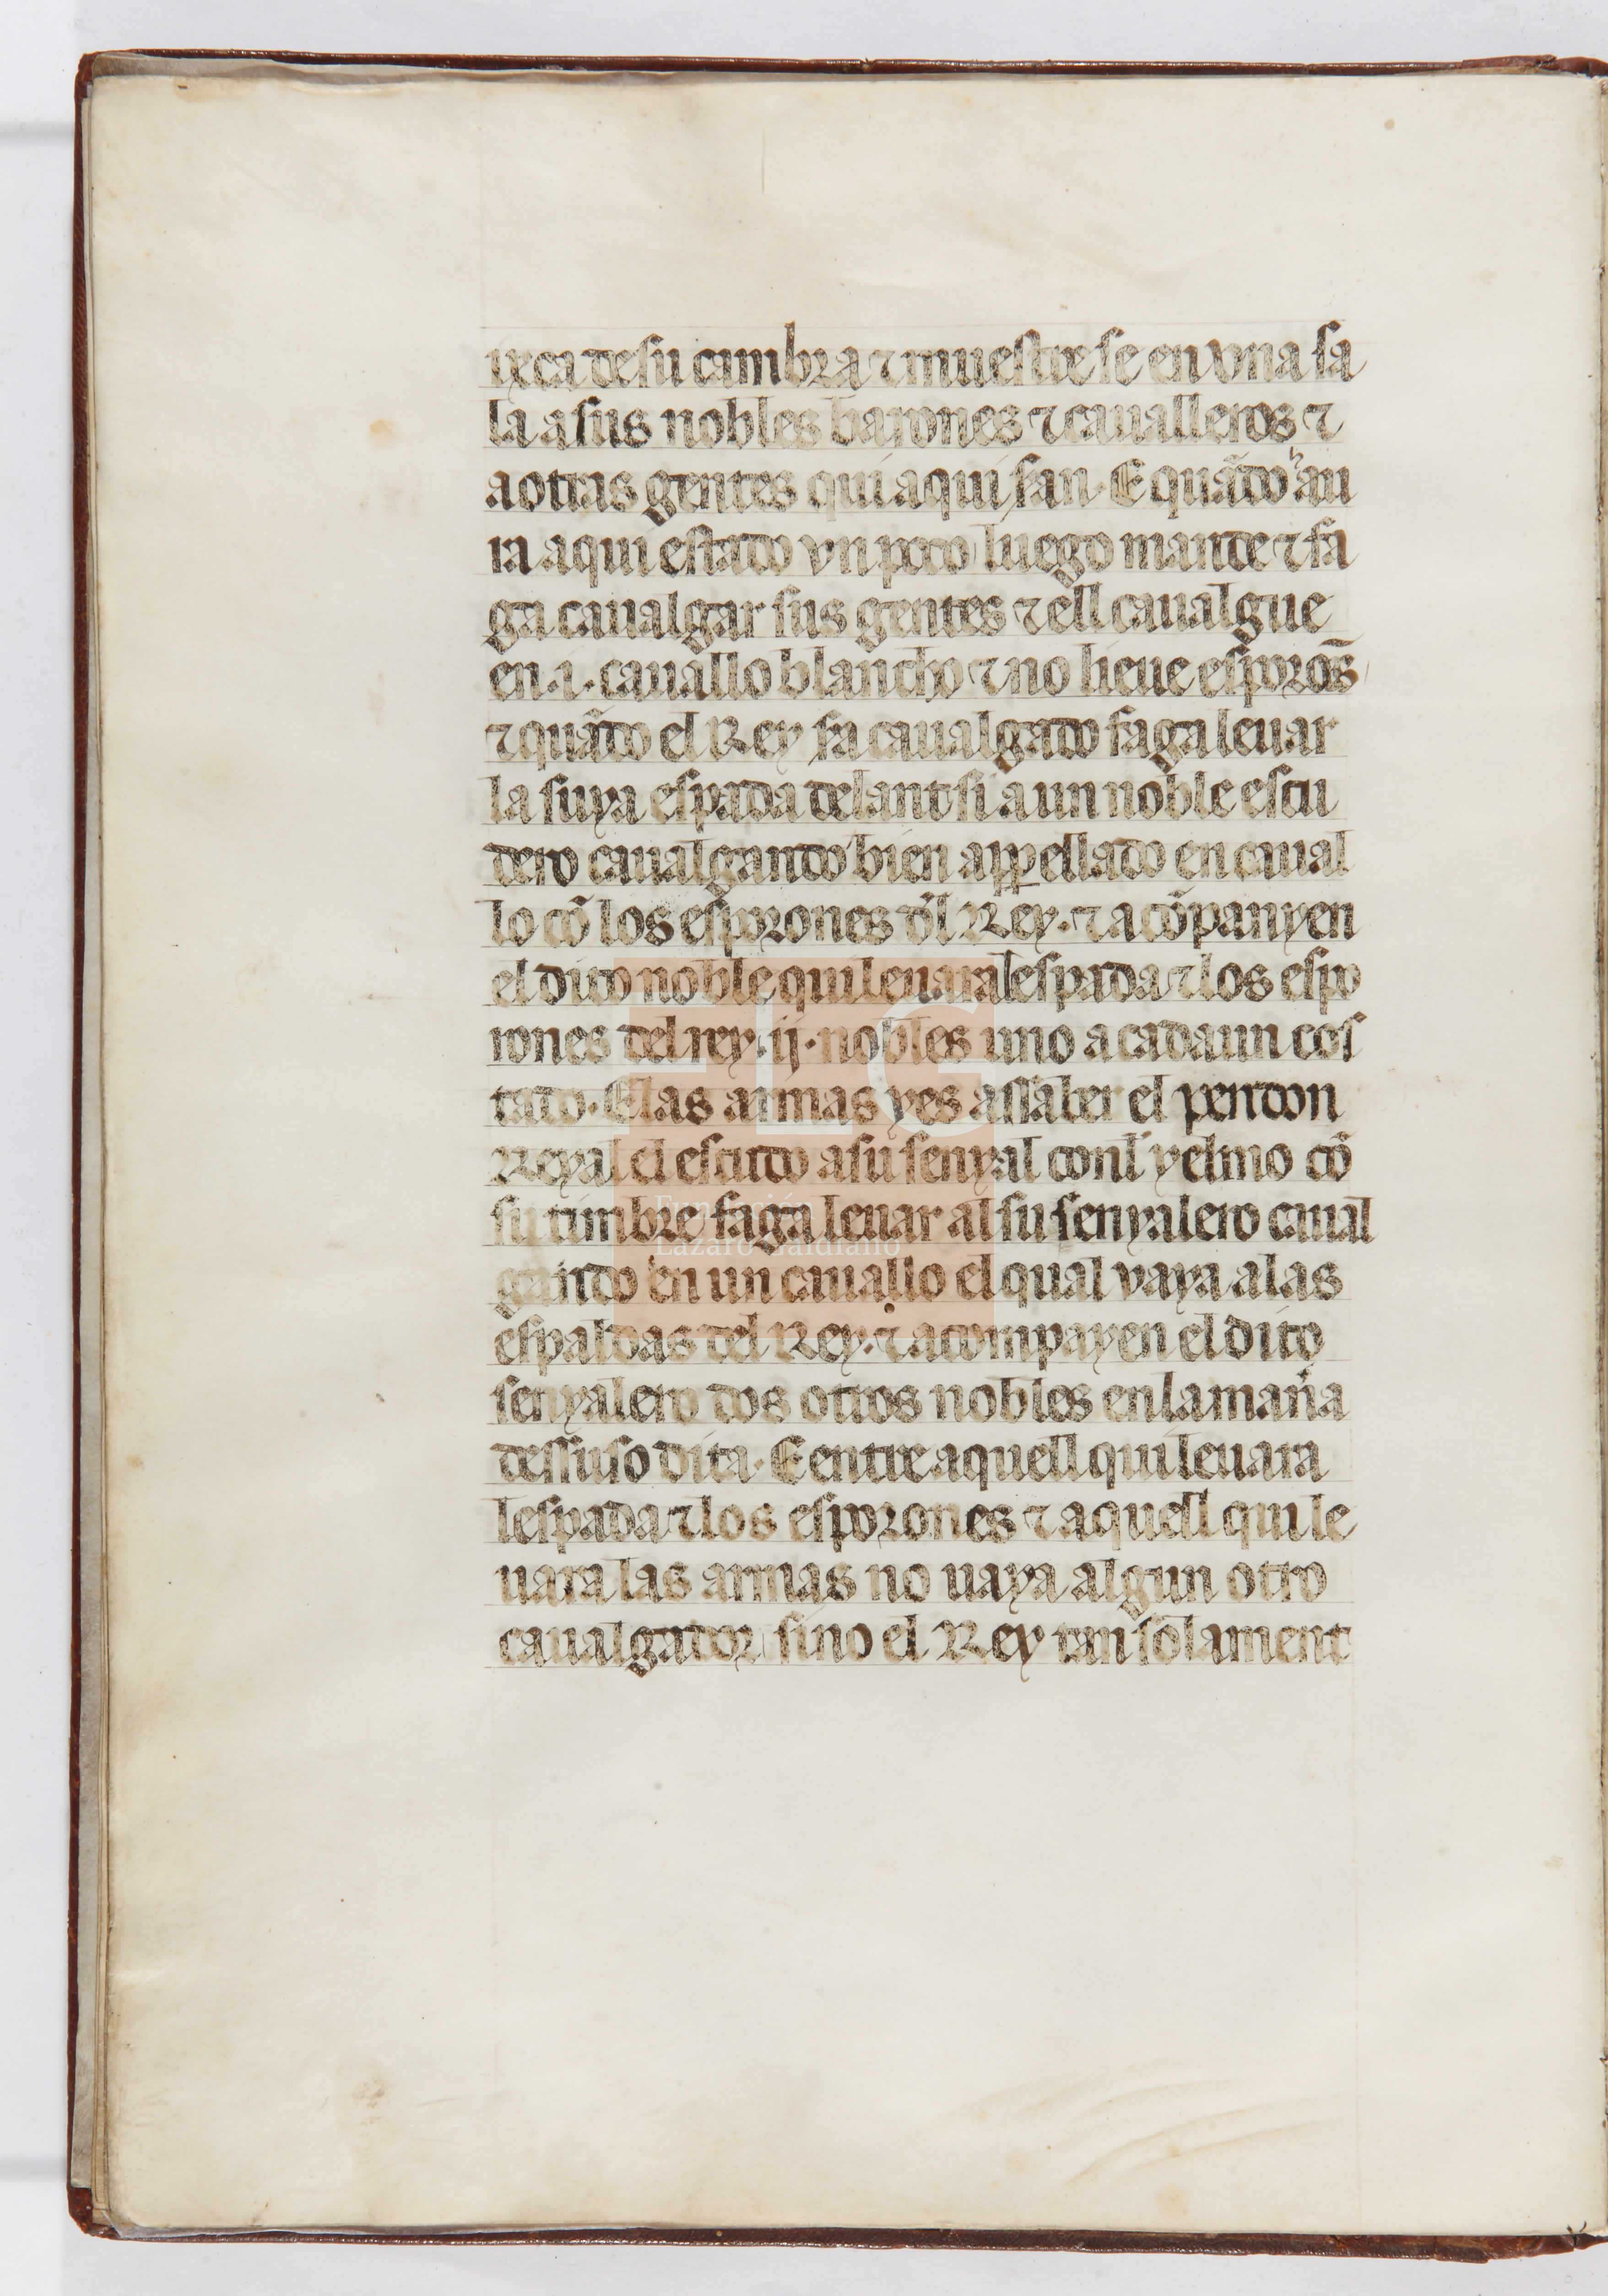 ixca de su cambra ⁊ muestre se en vna sa
la a sus nobles barones ⁊ caualleros ⁊
a otras gentes qui aqui san. E quãdo au
ra aqui estado vn poco luego mande ⁊ fa
ga caualgar sus gentes ⁊ ell caualgue
en .i. cauallo blancho ⁊ no lieue esporos̃
⁊ quãdo el Rey sa caualgado faga leuar
la suya espada delant si a un noble escu
dero caualgando bien appellado en caual
lo cõ los esporones dl̃ Rey. ⁊ a cõpanyen
el dito noble qui leuara lespada ⁊ los espo
rones del rey .ij. nobles uno a cada un cos
tado. E las armas yes assaber el pendon
Reyal el escudo a su senyal conl yelmo cõ
su timbre faga leuar al su senyalero caual
gando en un cauallo el qual vaya a las
espaldas del Rey. ⁊ acompayen el dito
senyalero dos otros nobles en la mañа
dessuso dita. E entre aquell qui leuara
lespada ⁊ los esporones ⁊ aquell qui le
uara las armas no uaya algun otro
caualgador sino el Rey tan solament
FLG
Fundación
Lázaro Galdiano